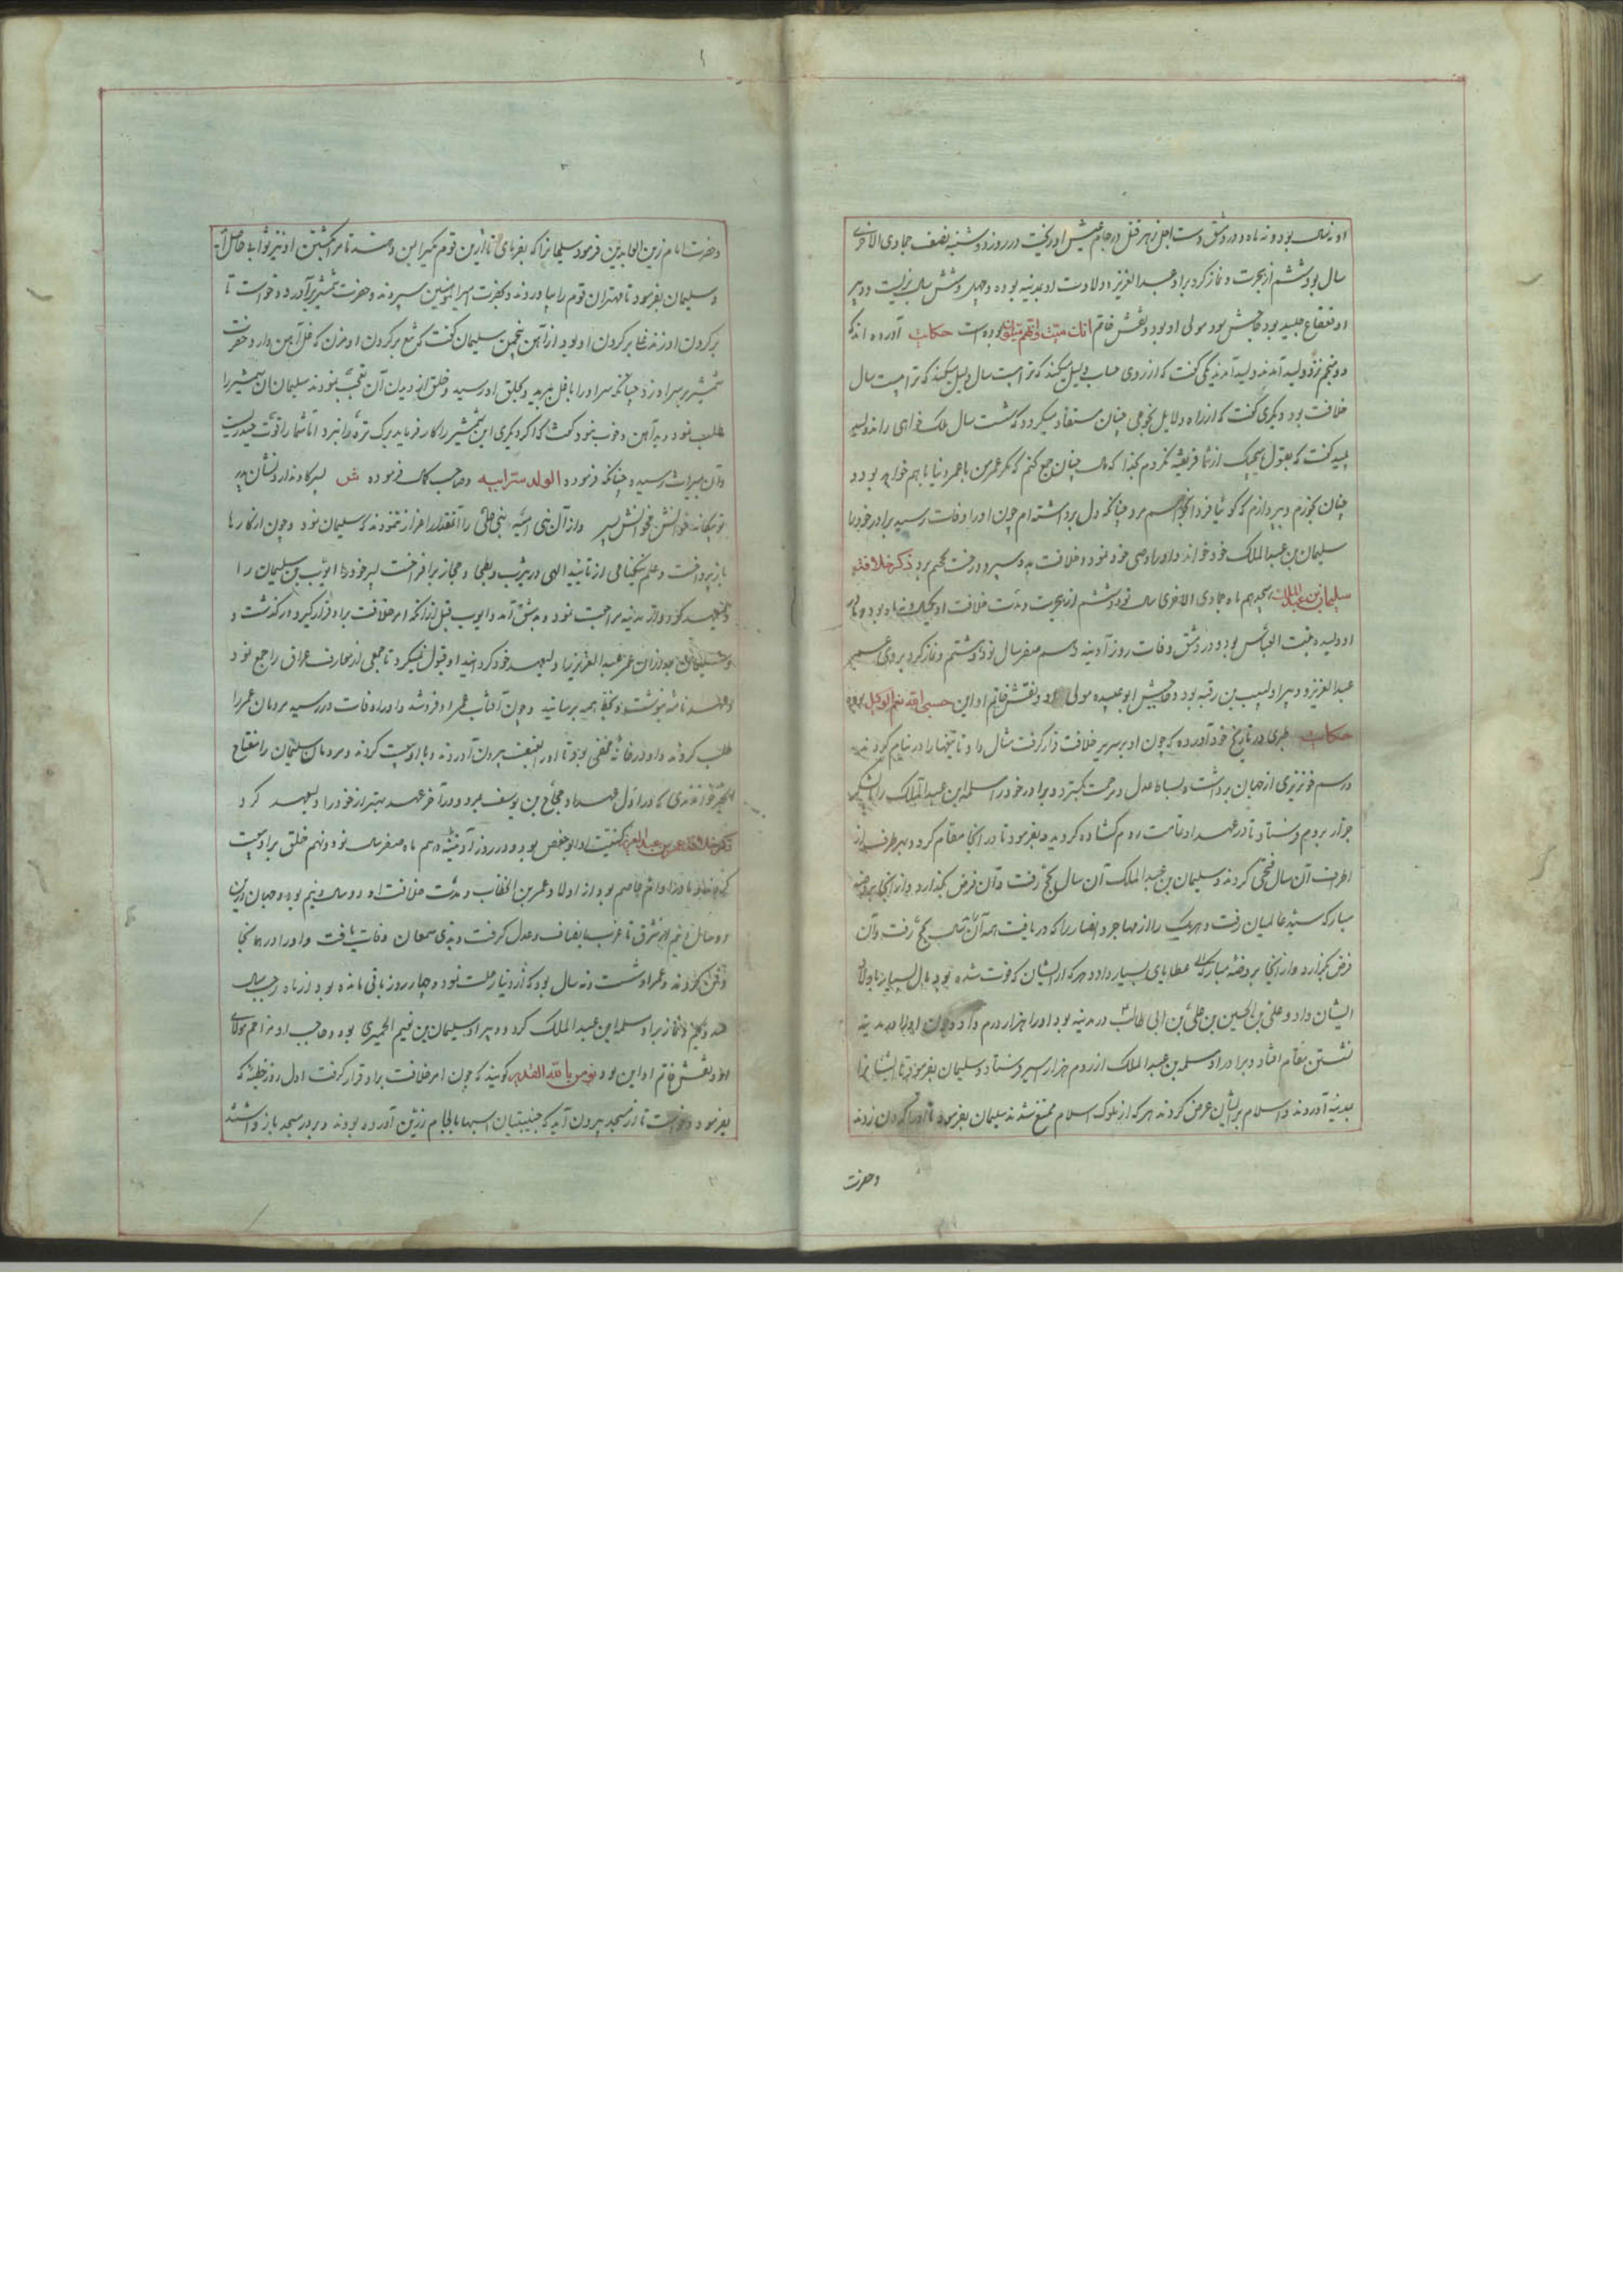 او نه سال بود و نه ماه و در دمشق دست اجل زهر قتل در جام عیش او ریخت در روز دوشنبه نصف جمادی الاخری
سال نود و ششم از هجرت و نماز کرد برو عبد العزیز و ولادت او بمدینه بوده و چهل و شش سال بزیست و دبیر
او قعقاع بود و حاجبش مولی او بود و نقش خاتم انک میت و انهم میتون بوده است حکایت آورده اند که
دو منجم نزد ولید آمدند یکی گفت که از روی حساب دلیل میکند که ترا بیست سال
خلافت بود و دیگری گفت که از راه دلایل نجومی چنان مستفاد میگردد که شصت سال ملک خواهی راند ولید
پلید گفت که بقول هیچیک از شما فریفته نگردم بخدا که مال چنان جمع کنم که مگر عمر من با عمر دنیا با هم خواهد بود و
چنان بخورم و بپردازم که گوئیا فردا خواهم مرد چنانکه دل برداشته ام چون او را وفات رسید برادر خود را
سلیمان بن عبد الملک خود خواند و او را وصی خود نمود و خلافت بدو سپرد و رخت بجهنم برد ذکر خلافت
سلیمان بن عبد الملک ماه جمادی الاخری سال نود و ششم از هجرت و مدت خلافت او بود و مادر
او ولیده بنت العباس بود و در دمشق وفات روز آدینه دهم صفر سال نود و هشتم و نماز کرد بر وی عمر
عبد العزیز و دبیر او بن رقیه بود و حاجبش ابو عبیده مولی او و نقش خاتم او این حسبی الله نعم الوکیل بوده
حکایت طبری در تاریخ خود آورده که چون او بر سریر خلافت قرار گرفت مثال داد تا تیغها را در نیام کردند
و رسم خونریزی از جهان برداشت و بساط عدل و مرحمت بگسترد و برادر خود را مسلمه ابن عبد الملک را با لشکر
جرار بروم فرستاد تا در عهد او تمامت روم گشاده گردید و بفرمود تا در آنجا مقام کرد و بهر طرف از
اطراف آن سال فتحی کردند و سلیمان بن عبد الملک آن سال بحج رفت و آن فرض بگذارد و از آنجا بروضه
مبارکه سید عالمیان رفت و هر یک را از مهاجر و انصار را که دریافت همه آن سال بحج رفت و آن
فرض بگزارد و از آنجا بروضه مبارکه عطایای بسیار داد و هر که از ایشان که فوت شده بود مال بسیار باولاد
ایشان داد و علی بن الحسین بن علی بن ابی طالب در مدینه بود او را هزار درم داد و چون او را در مدینه
نشستن مقام افتاد و برادر او مسلمه بن عبد الملک از روم هزار اسیر فرستاد و سلیمان بفرمود تا ایشانرا
بمدینه آوردند و اسلام بر ایشان عرض کردند هر که از ملوک اسلام ممتنع شدند سلیمان بفرمود تا او را گردن زدند
و حضرت
و حضرت امام زین العابدین فرمود سلیمانرا که بفرمای تا ازین قوم یکی را بمن دهند تا مرا کشتن او نیز ثوابی حاصل آید
و سلیمان بفرمود تا مهتران قوم را بیاوردند و بحضرت امیر المؤمنین سپردند و حضرت شمشیر برآورد و خواست تا
بر گردن او زند غلی بر گردن او بود از آهن سلیمان گفت که تیغ بر گردن او مزن که غل آهن دارد حضرت
شمشیر بر سر او زد چنانکه سر او را با غل ببرید و بحلق او رسید و خلق از دیدن آن تعجب نمودند سلیمان آن شمشیر را
طلب نمود و بد آهن و خوب نبود گفت که اگر دیگری این شمشیر را کار فرماید برگ تره را نبرد اما شما را قوت حیدریست
و آن بمیراث رسیده چنانکه فرموده الولد سر ابیه و صاحب کمال فرموده ش پسر کاو ندارد نشان پدر
تو بیگانه خوانش مخوانش پسر و از آل بنی امیه بنی علی را آنقدر اعزاز ننمودند که سلیمان نمود و چون از کارها
باز پرداخت و علم نیکنامی از تایید الهی در یثرب و بطحا و حجاز برافراخت پسر خود را ایوب بن سلیمان را
ولیعهد کرد و از مدینه مراجعت نمود و بدمشق آمد و ایوب قبل از آنکه امر خلافت برو قرار گیرد درگذشت و
سلیمان بعد از آن عمر عبد العزیز را ولیعهد خود گردانید او قبول نمیکرد تا جمعی از معارف عراق را جمع نمود
و عهد نامه نوشت و بخط همه برسانید و چون آفتاب عمر او فرو شد و او را وفات در رسید مردمان عمر را
طلب کردند و او در خانه مخفی بود تا او را بعنف بیرون آوردند و با او بیعت کردند و مردمان سلیمان را مفتاح
الخیر خواندندی که در اول عهد او حجاج بن یوسف بمرد و در آخر عهد بهتر از خود را ولیعهد کرد
ذکر خلافت عمر بن عبد العزیز کنیت او ابو حفص بود و در روز آدینه دهم ماه صفر سال نود و نهم خلق برو بیعت
کردند و مادر او ام عاصم بود از اولاد عمر بن الخطاب و مدت خلافت او دو سال و نیم بود و جهان درین
دو سال و نیم از شرق تا غرب بانصاف و عدل گرفت و بدیر سمعان وفات یافت و او را در همانجا
دفن کردند و عمر او شصت و نه سال بود که از دنیا رحلت نمود و چهار روز باقی مانده بود از ماه رجب سال
صد و یکم و نماز برو مسلمه ابن عبد الملک کرد و دبیر او سلیمان بن نعیم الحمیری بود و حاجب او مزاحم مولای
او و نقش خاتم او این بود نؤمن بالله القدیر گویند که چون امر خلافت برو قرار گرفت اول روز خطبه که
بفرمود و خواست تا از مسجد بیرون آید که جنیبتیان اسبها با لجام زرین آورده بودند و بر در مسجد باز داشتند